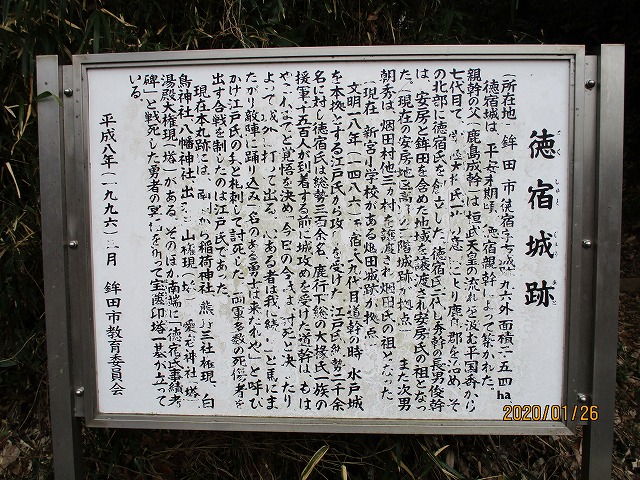 徳宿城跡
(所在地 鉾田市徳宿 九六外 面積二・五四ha)
徳宿城は、平安末期頃、徳宿親幹によって築かれた。
親幹の父、鹿島成幹は桓武天皇の流れを汲む平国香から
七代目で、 鹿島郡を治め、そ
の北部に徳宿氏を創立した。徳宿氏二代し秀幹の長男俊幹
は、安房と鉾田を含めた地域を譲渡され安房氏の祖とな
た。(現在の安房地区高野の三階城跡が拠点) また次男
朝秀は、烟田村他三か村を譲渡され烟田氏の祖となった
(現在、新宮小学校がある烟田城跡が拠点)
文明一八年(一四八六)徳宿氏九代目道幹の時、水戸城
を本拠とする江戸氏から攻撃を受けた。江戸氏総勢二千余
名に対し徳宿氏は総勢三百余名、鹿行下総の大掾氏一族の
援軍千五百人が到着する前に城攻めを受けた道幹は、もは
やこれまでと覚悟を決め、「今日の合戦は討死と決したり
よって城外に打って出る、心ある者は我に続け」と馬にま
たがり敵陣に踊り込み「名のある勇士は来たれや」と呼び
かけ江戸氏の兵と相刺して討死した。両軍多数の死傷者を
出す合戦を制したのは江戸氏であった。
現在本丸跡には、南から稲荷神社、熊野三社権現、白
鳥神社、八幡神社、出 山権現(塔)、愛宕神社(塔)
湯殿大権現(塔)がある。そのほか南端に「徳宿氏事績考
碑」と戦死した勇者の冥福を祈って宝篋印塔一基が立って
いる。
平成八年(一九九六) 月 鉾田市教育委員会
2020/01/26